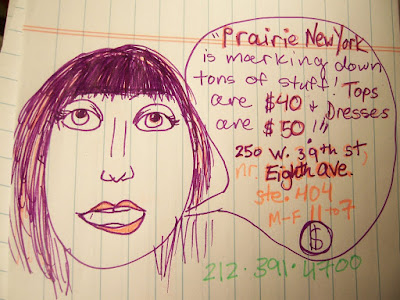 "Prairie New York
is marking down
tons of stuff! Tops
are $40 + Dresses
are $50!!!
250 W. 39th st,
nr. Eighth ave.
ste. 404
M-F 11-07
$
212.391.4700